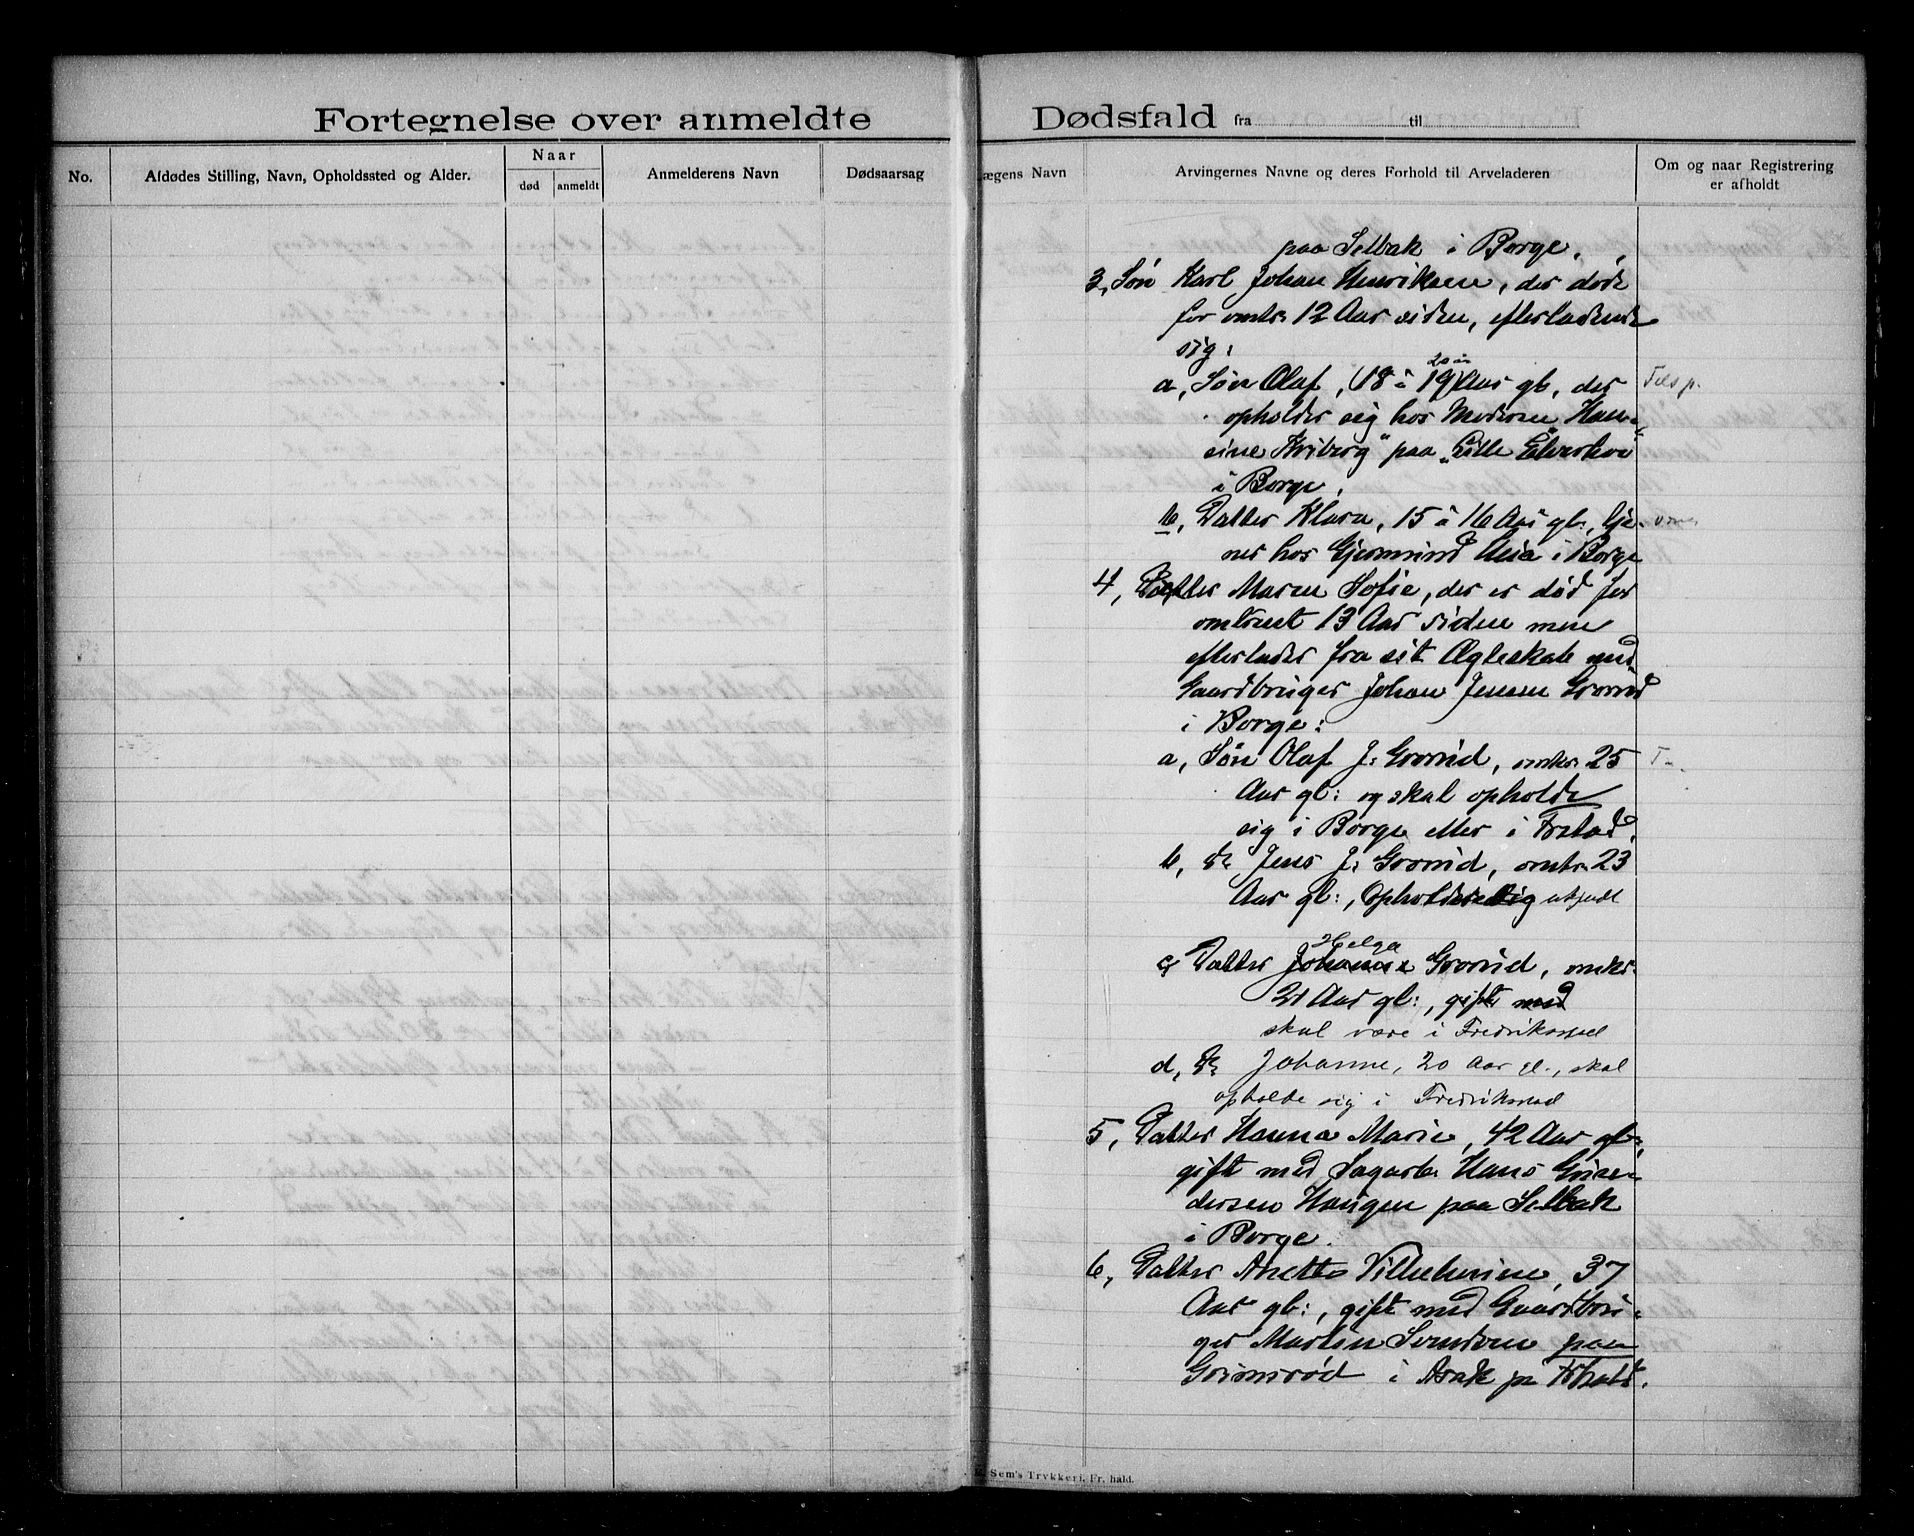 Fortegnelse over anmeldte Dødsfald fra til
No.
Afdødes Stilling, Navn, Opholdssted og Alder.
Naar
død
anmeldt
Anmelderens Navn
Dødsaarsag
ægens Navn
Arvingernes Navne og deres Forhold til Arveladeren
Om og naar Registrering
er afholdt
paa Selbak i Borge.
3, Søn Karl Johan Henriksen, der døde
for omtr. 12 Aar siden, efterladende
sig:
20 år
a, Søn Olaf, (18 à 19) Aar gl., der
opholder sig hos Moderen „Han-
sine Friberg" paa „Lille Elverhøi"
i Borge,
b, Datter Klara, 15 à 16 Aar gl., tje-
ner hos Gjermund Aeia i Borge
4, Datter Maren Sofie, der er død for
omtrent 13 Aar siden men
efterlader fra sit Ægteskab med
Gaardbruger Johan Jensen Grorud
i Borge:
a, Søn Olaf J: Grorud, omtr. 25
Aar gl: og skal opholde
sig i Borge eller i Frstad.
b, do Jens J: Grorud, omtr. 23
Aar gl:, Opholdssted ukjendt
Helga
c, Datter Johanne Grorud, omtr.
21 Aar gl:, gift med
skal være i Fredriksstad
d, do Johanne, 20 Aar gl., skal
opholde sig i Fredriksstad
5, Datter Hanna Marie, 42 Aar gl:,
gift med Sagarb. Hans
Haugen paa Selbak
i Borge.
6, Datter Anette Vilhelmine, 37
Aar gl:, gift med Gaardbru-
ger Martin Svendsen paa
Grimsrød i Asak pr Frhald.
Sem's Trykkeri, Fr. hald.